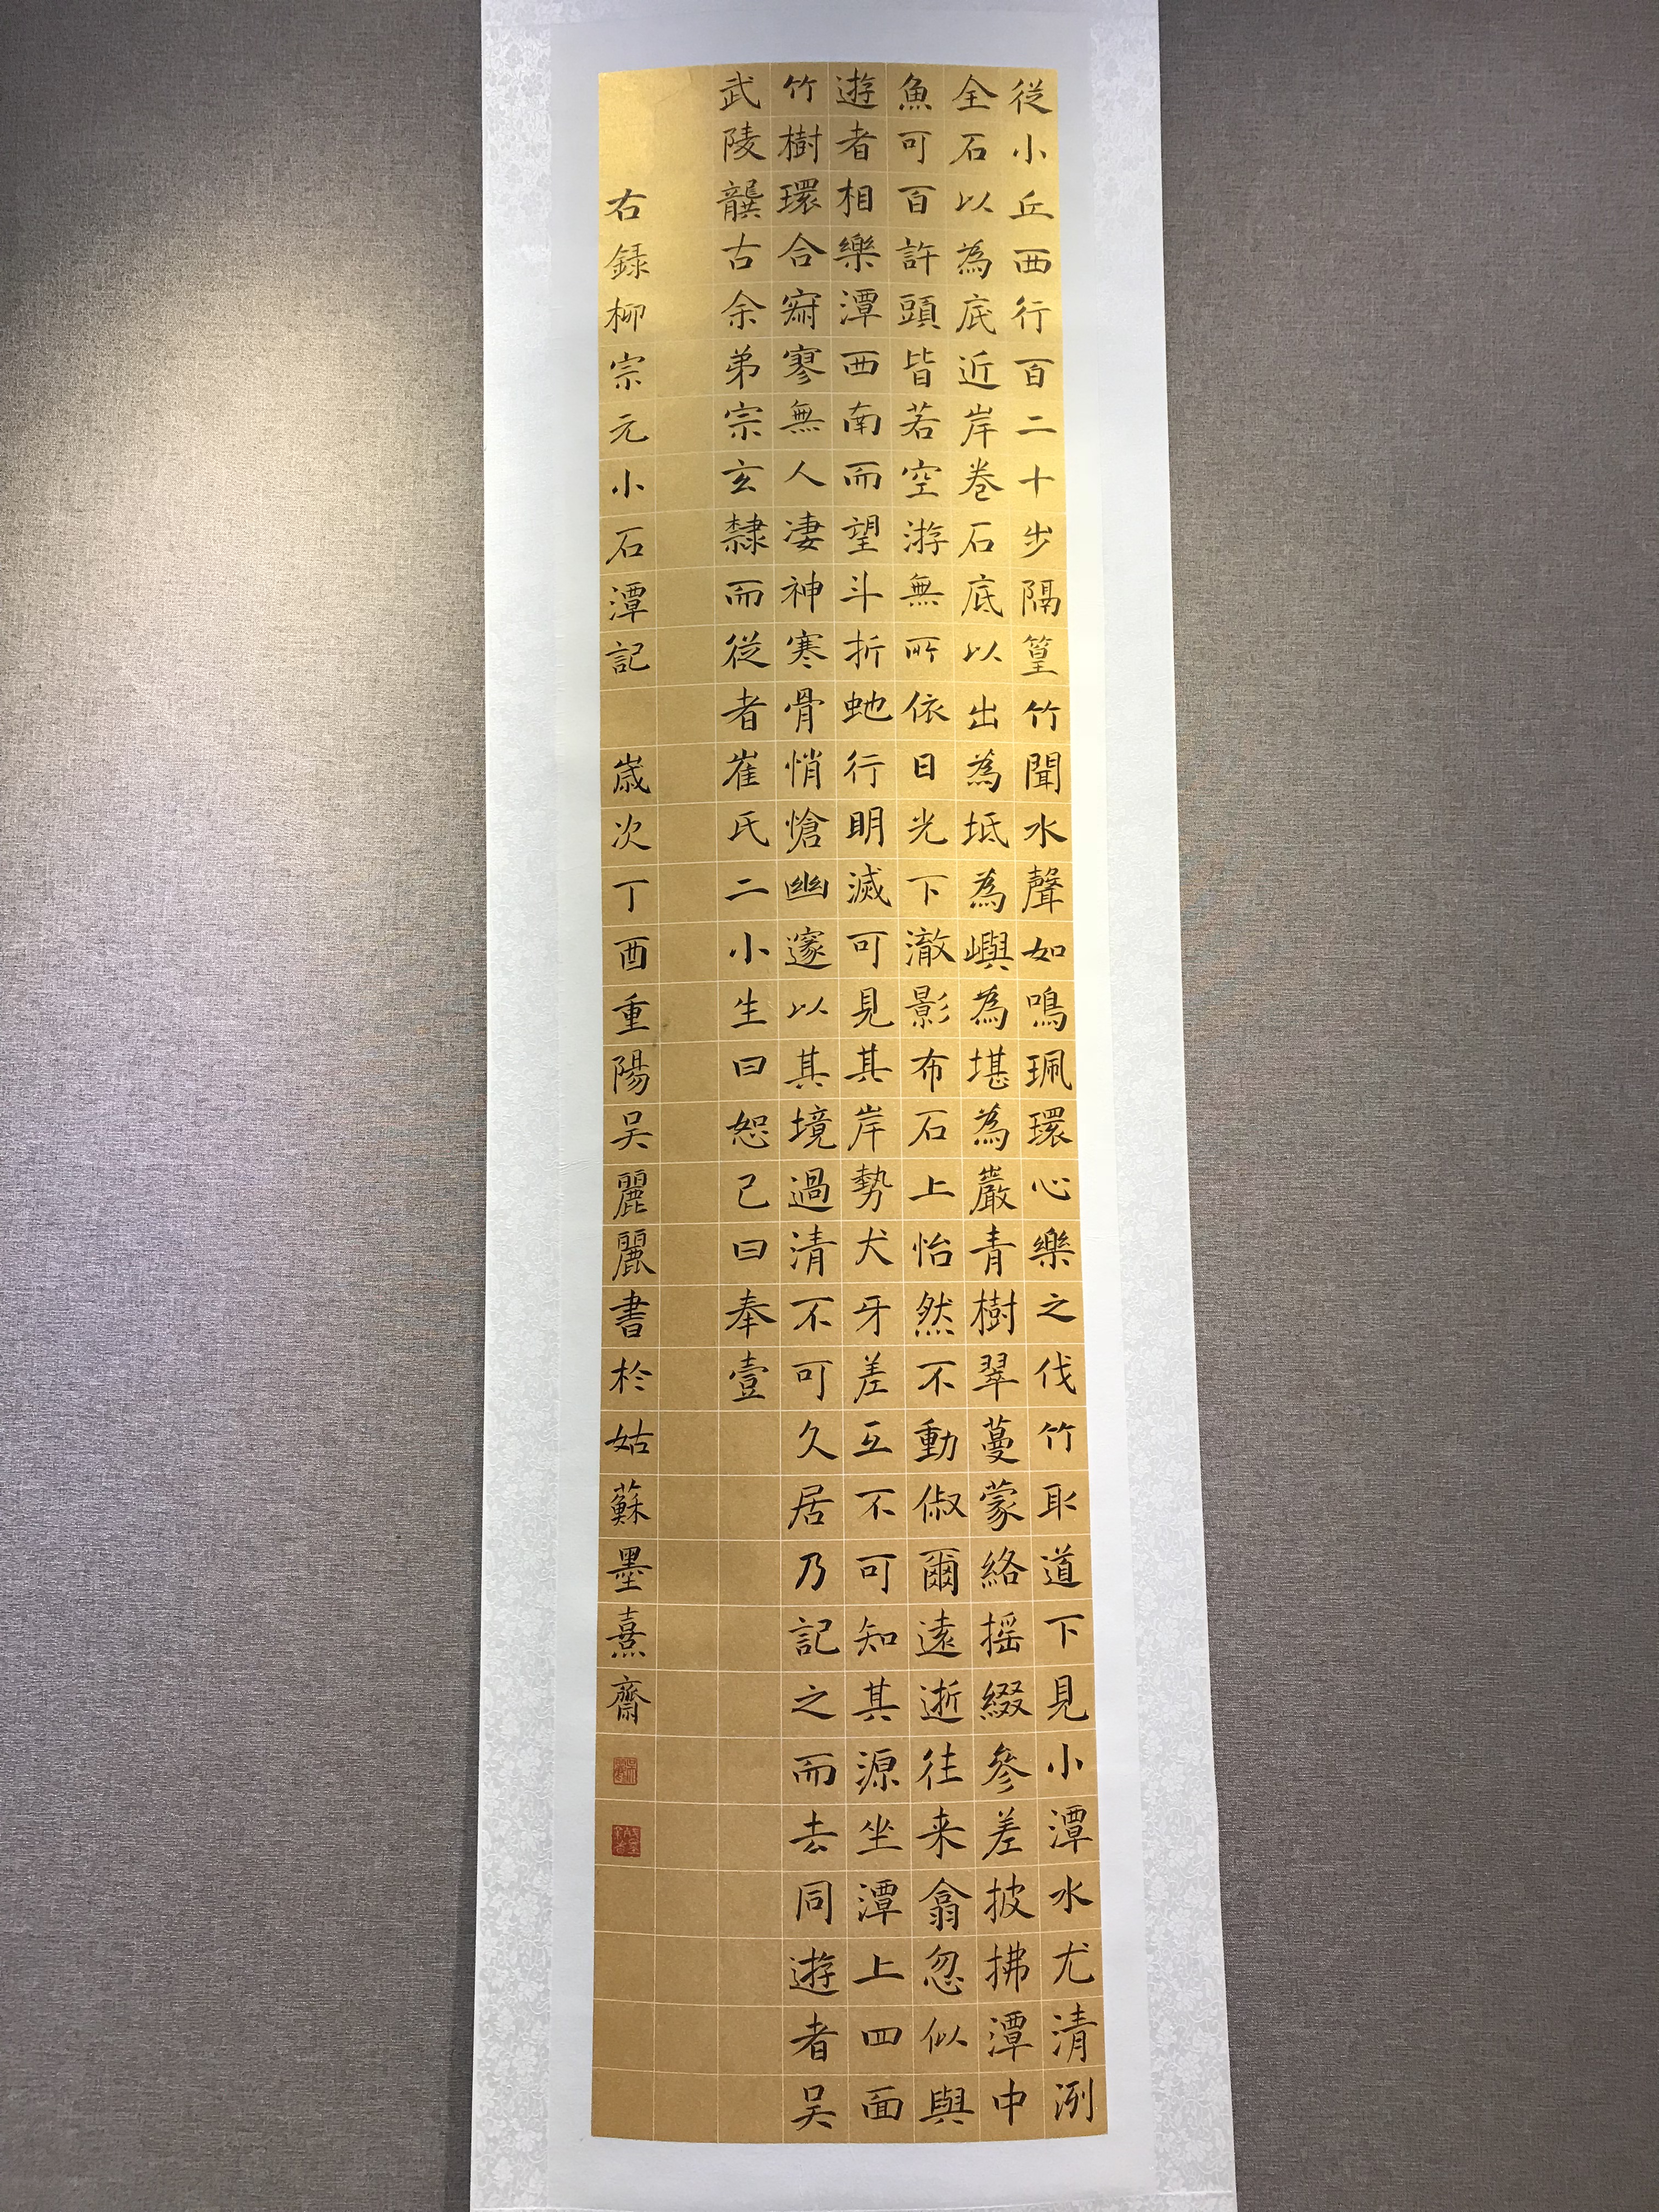 從小丘西行百二十步隔篁竹聞水聲如鳴珮環心樂之伐竹取道下見小潭水尤清洌
全石以為底近岸卷石底以出為坻為嶼為堪為巖青樹翠蔓蒙絡搖綴參差披拂潭中
魚可百許頭皆若空游無所依日光下澈影布石上怡然不動俶爾遠逝往来翕忽似與
遊者相樂潭西南而望斗折虵行明滅可見其岸勢犬牙差互不可知其源坐潭上四面
竹樹環合寂寥無人凄神寒骨悄愴幽邃以其境過清不可久居乃記之而去同遊者吴
武陵龔古余弟宗玄隸而從者崔氏二小生曰恕己曰奉壹
右録柳宗元小石潭記 歲次丁酉重陽吴麗麗書於姑蘇墨熹齋